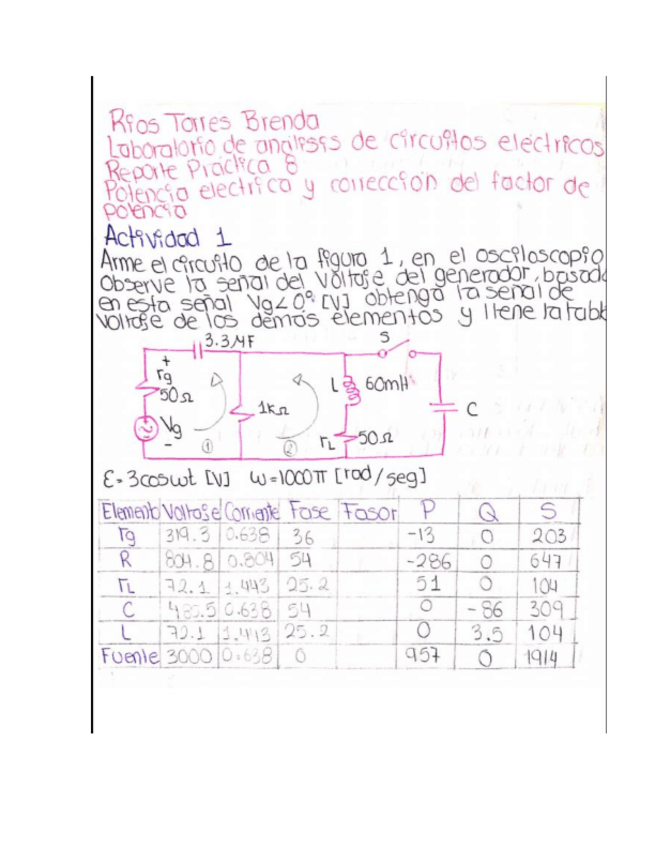 Ríos Torres Brenda
Laboratorio de analisis de circuitos electricos
Reporte Practica 8
Potencia electrica y correccion del factor de
potencia
Actividad 1
Arme el circuito de la figura 1, en el osciloscopio
Observe la señal del voltaje del generador, basado
en esta señal Vg∠0° [V] obtenga la señal de
Voltaje de los demás elementos y llene la tabl
3.3MF
S
+
rg
50Ω
Vg
-
1
1kΩ
2
L
60mH
rL
50Ω
C
Ɛ=3coswt [V] ω=1000π [rad/seg]
Elemento Voltaje Corriente Fase Fasor P Q S
rg 319.3 0.638 36 -13 0 203
R 804.8 0.804 54 -286 0 647
rL 72.1 1.443 25.2 51 0 104
C 0.638 54 0 -86 309
L 72.1 1.443 25.2 0 3.5 104
Fuente 3000 0.638 0 957 0 1914